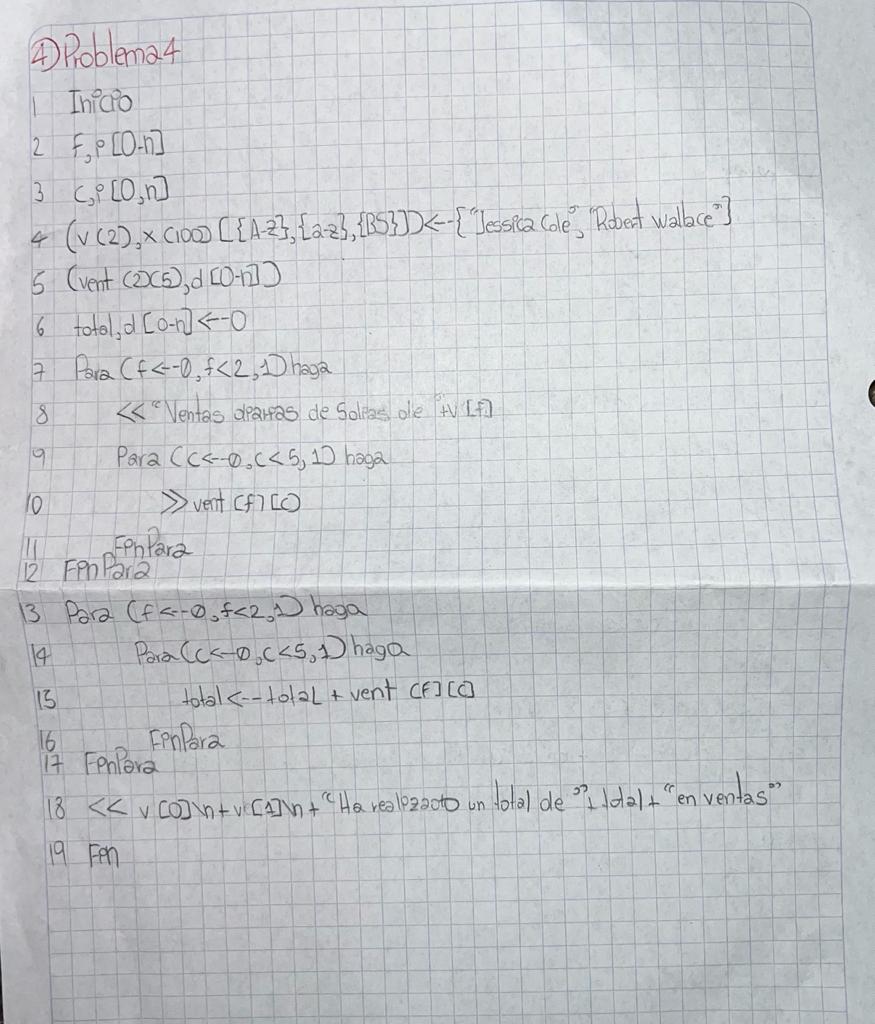 4) Problema 4
1 Inicio
2 f,i [0-n]
3 c,i [0,n]
4 (v (2), x (100) [{A-z},{a-z},{BS}]) <-- {"Jessica Cole", "Robert Wallace"}
5 (vent (2)(5), d [0-n])
6 total, d [0-n] <-- 0
7 Para (f <-- 0, f<2, 1) haga
8 << "Ventas diarias de Soleas de "+v [f]
9 Para (c <-- 0, c<5, 1) haga
10 >> vent [f] [c]
11 FinPara
12 FinPara
13 Para (f <-- 0, f<2, 1) haga
14 Para (c <-- 0, c<5, 1) haga
15 total <-- total + vent [f] [c]
16 FinPara
17 FinPara
18 << v [0] \n + v [1] \n + "Ha realizado un total de "+ total + "en ventas"
19 Fin